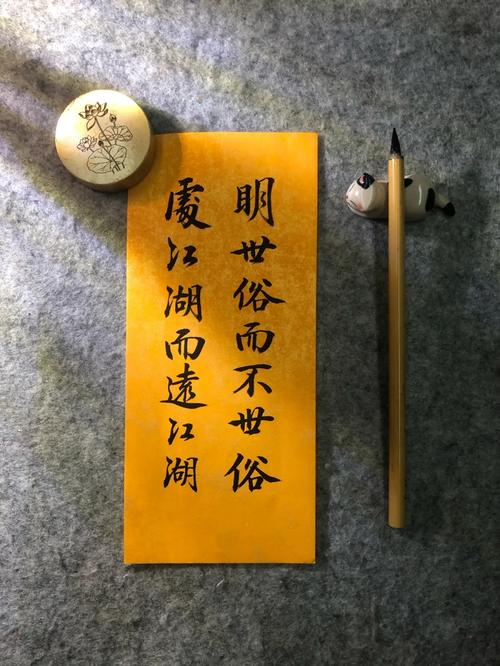 明世俗而不世俗
處江湖而遠江湖